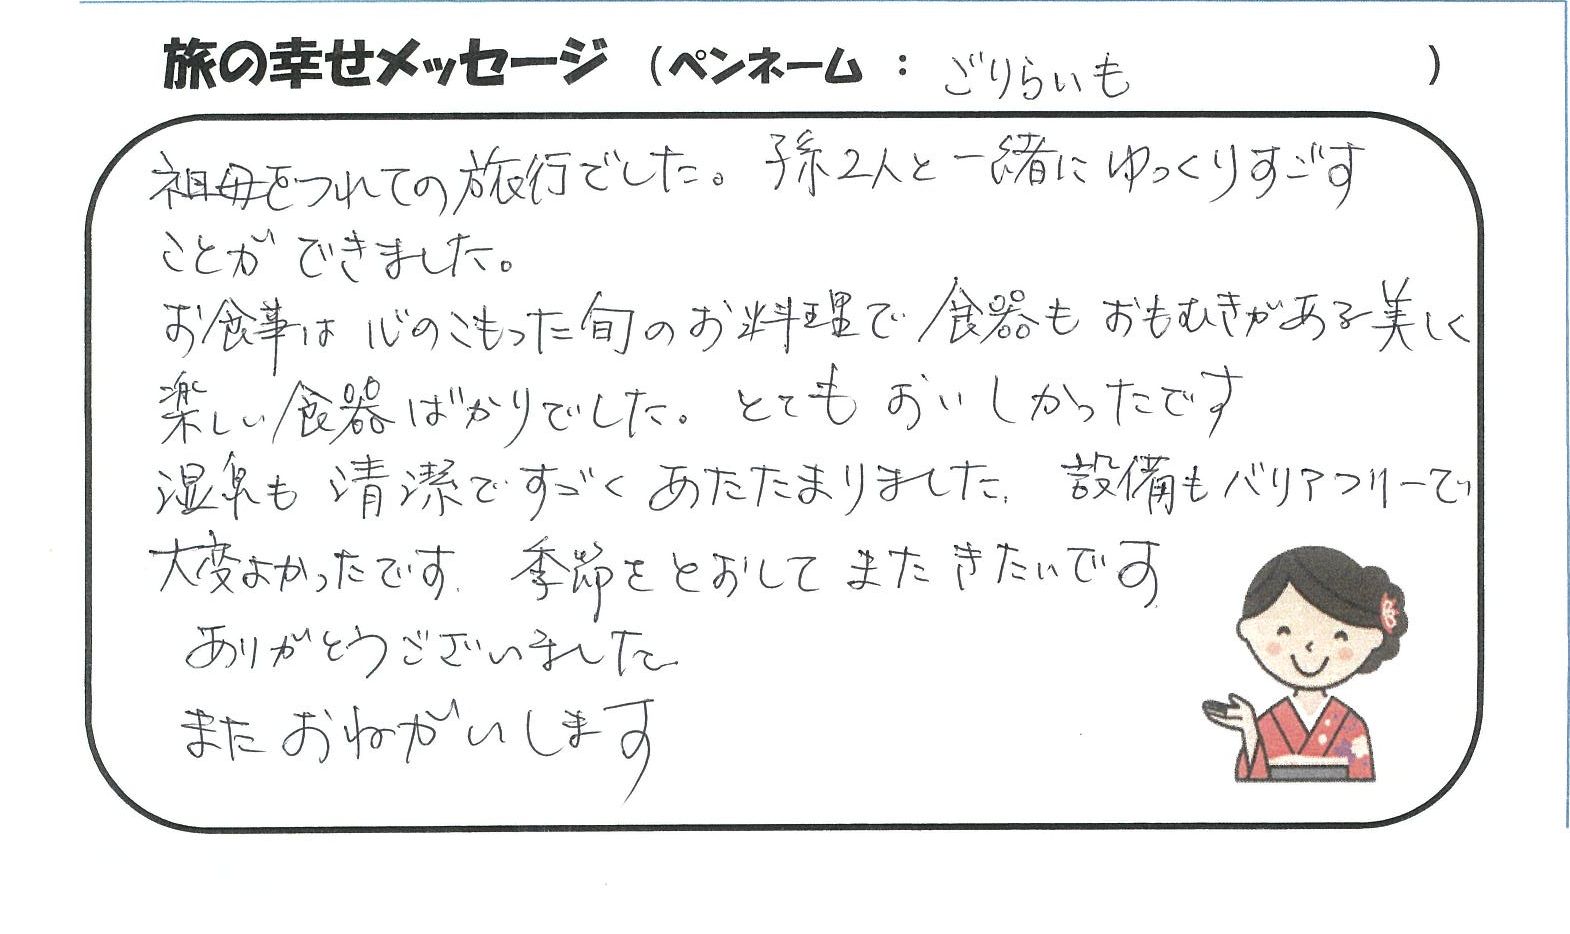 旅の幸せメッセージ （ペンネーム ： ごりらいも ）
祖母をつれての旅行でした。孫2人と一緒にゆっくりすごす
ことができました。
お食事は心のこもった旬のお料理で食器もおもむきがある美しく
楽しい食器ばかりでした。とてもおいしかったです
温泉も清潔ですごくあたたまりました. 設備もバリアフリーで
大変よかったです. 季節をとおしてまたきたいです
ありがとうございました
またおねがいします